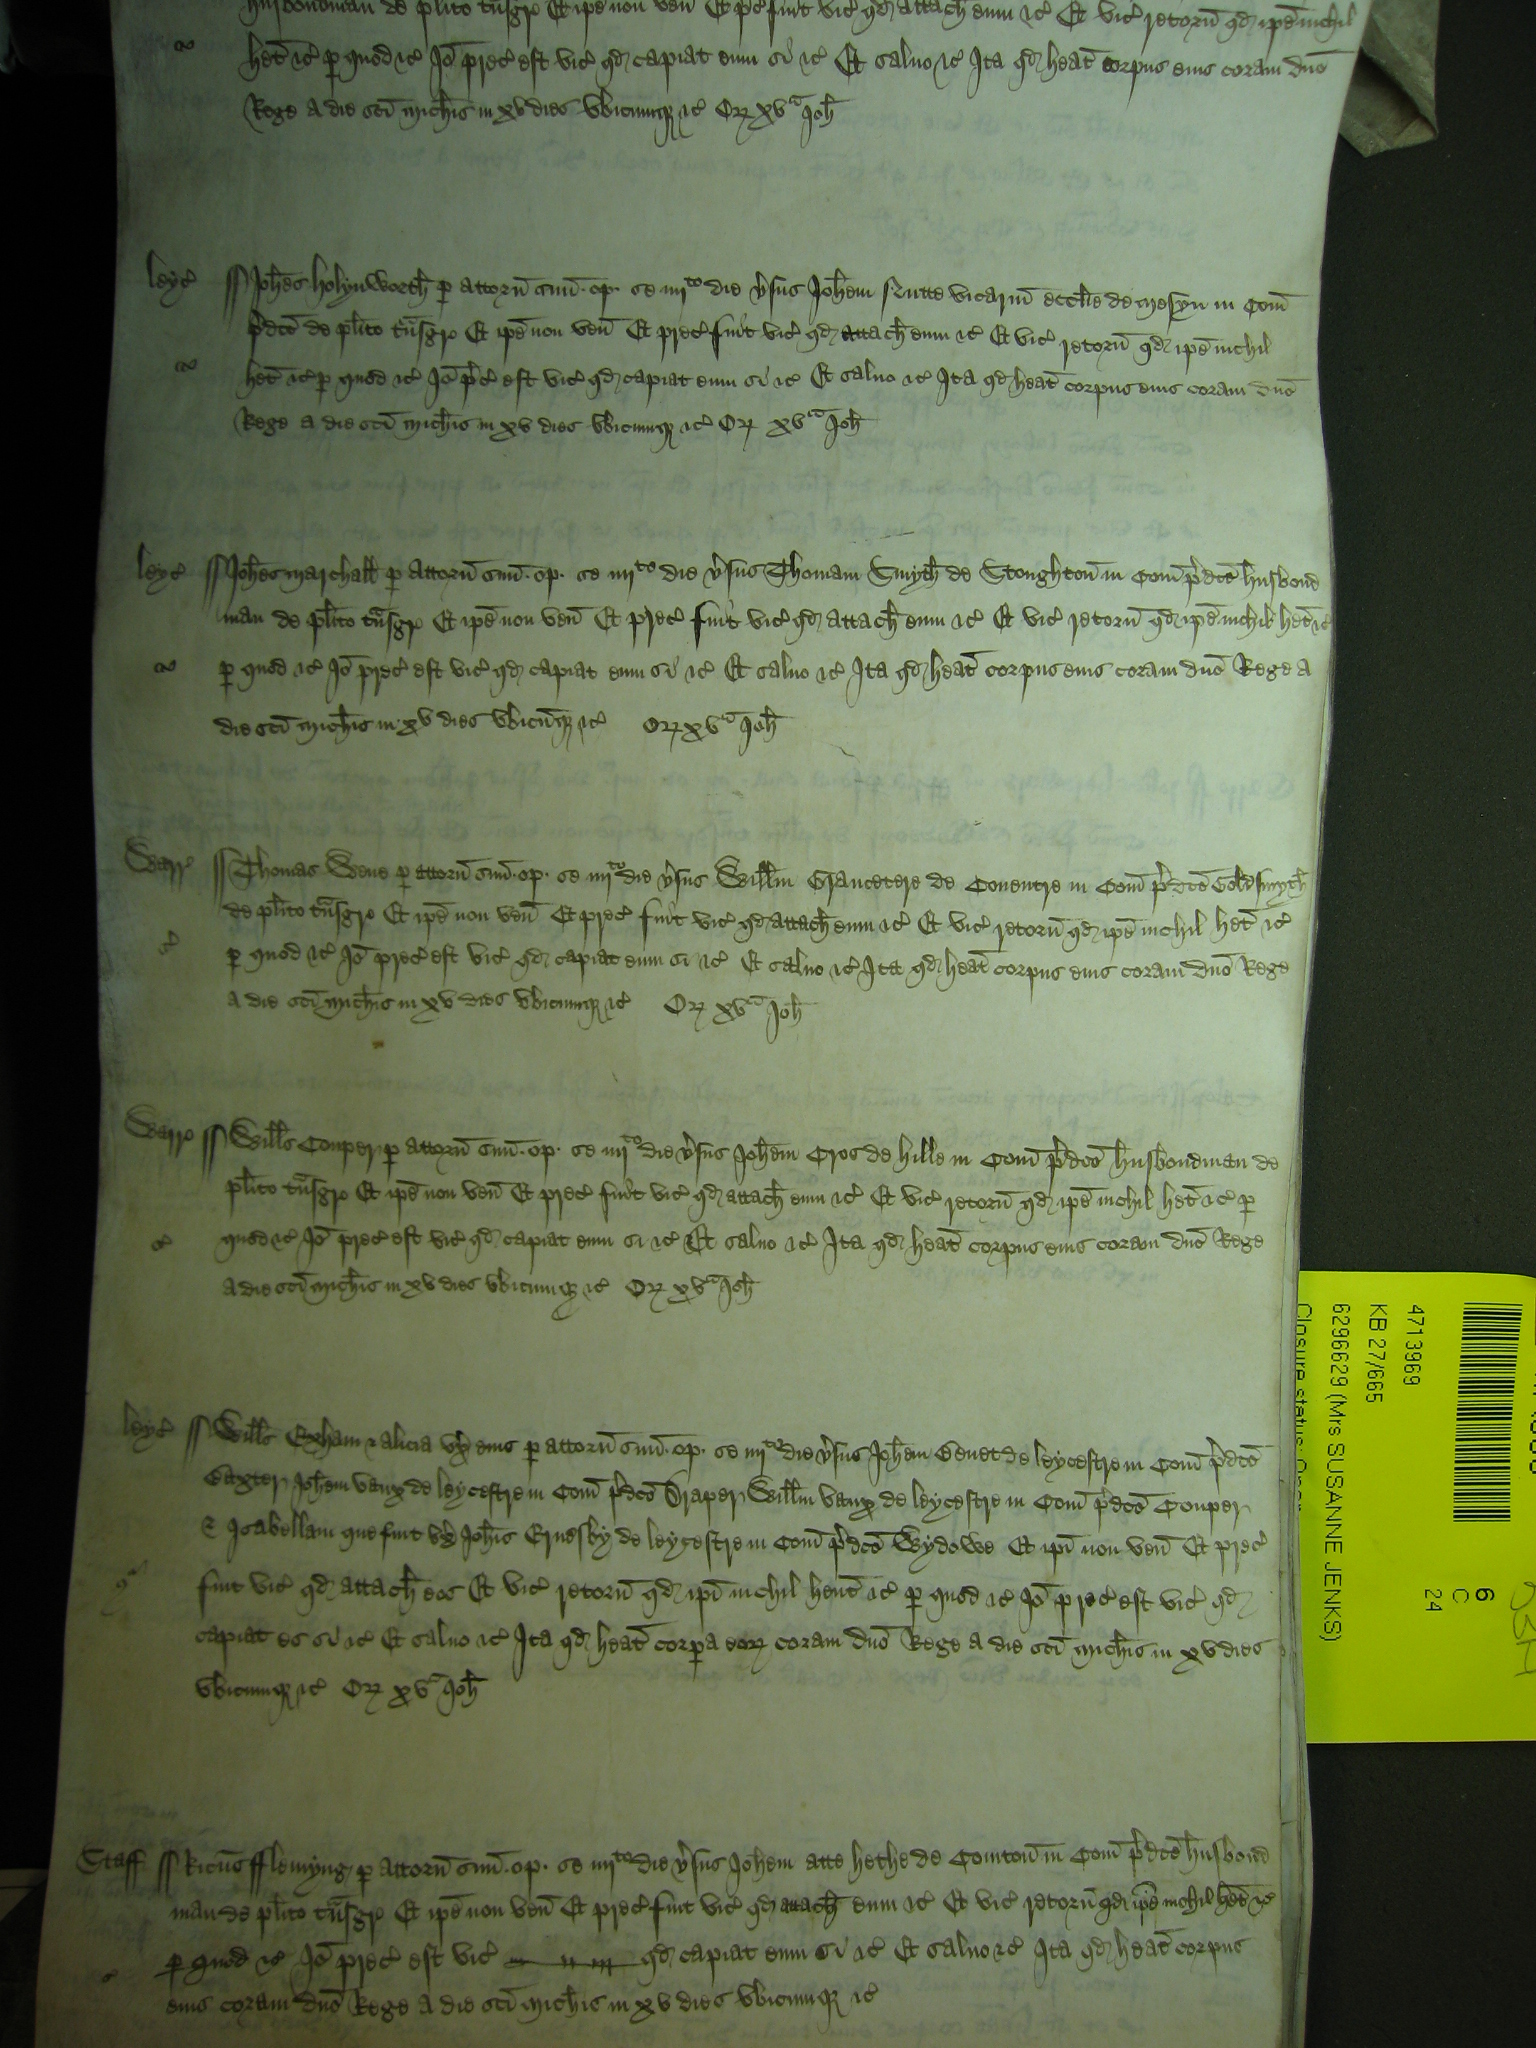 husbondman de plito tnsgr Et ipe non ven Et prec fuit vic qd attach eum &c Et vic retorn qd ipe nichil
het &c per quod &c Io prec est vic qd capiat eum si &c Et saluo &c Ita qd heat corpus eius coram dno
Rege a die sci Michis in xv dies vbicumq &c Or xva Joh
leyc Johes Holynworth p attorn suu op se iiiito die vsus Johem Nutte vicariu ecclie de in Com
pdco de plito tnsgr Et ipe non ven Et prec fuit vic qd attach eum &c Et vic retorn qd ipe nichil
het &c p quod &c Io prec est vic qd capiat eum si &c Et saluo &c Ita qd heat corpus eius coram dno
Rege a die sci Michis in xv dies vbicumq &c Or xva Joh
leyc Johes Marchall p attorn suu op se iiiito die vsus Thomam Smyth de Stoughton in Com pdco husbond
man de plito tnsgr Et ipe non ven Et prec fuit vic qd attach eum &c Et vic retorn qd ipe nichil het &c
p quod &c Io prec est vic qd capiat eum si &c Et saluo &c Ita qd heat corpus eius coram dno Rege a
die sci Michis in xv dies vbicumq &c Or xva Joh
Warr Thomas Wene p attorn suu op se iiiito die vsus Willm Grauncetere de Couentre in Com pdco Goldsmyth
de plito tnsgr Et ipe non ven Et prec fuit vic qd attach eum &c Et vic retorn qd ipe nichil het &c
p quod &c Io prec est vic qd capiat eum si &c Et saluo &c Ita qd heat corpus eius coram dno Rege
a die sci Michis in xv dies vbicumq &c Or xva Joh
Warr Wills Couper p attorn suu op se iiiito die vsus Johem Cros de Hille in Com pdco husbondman de
plito tnsgr Et ipe non ven Et prec fuit vic qd attach eum &c Et vic retorn qd ipe nichil het &c p
quod &c Io prec est vic qd capiat eum si &c Et saluo &c Ita qd heat corpus eius coram dno Rege
a die sci Michis in xv dies vbicumq &c Or xva Joh
leyc Wills Exham & Alicia vx eius p attorn suu op se iiiito die vsus Johem de leycestre in Com pdco
Baxter Johem Vaux de leycestre in Com pdco Draper Willm Vaux de leycestre in Com pdco Couper
& Isabellam que fuit vx Johis Ernesby de leycestre in Com pdco Wydowe Et ipi non ven Et prec
fuit vic qd attach eos Et vic retorn qd ipi nichil hent &c p quod &c Io prec est vic qd
capiat es si &c Et saluo &c Ita qd heat corpa eor coram dno Rege a die sci Michis in xv dies
vbicumq &c Or xva Joh
Staff Ricus Fflemyng p attorn suu op se iiiito die vsus Johem atte Hethe de Comton in Com pdco husbond
man de plito tnsgr Et ipe non ven Et prec fuit vic qd attach eum &c Et vic retorn qd ipe nichil het &c
p quod &c Io prec est vic qd capiat eum si &c Et saluo &c Ita qd heat corpus
eius coram dno Rege a die sci Michis in xv dies vbicumq &c
4713969
KB 27/665
6296629 (Mrs SUSANNE JENKS)
6
C
24